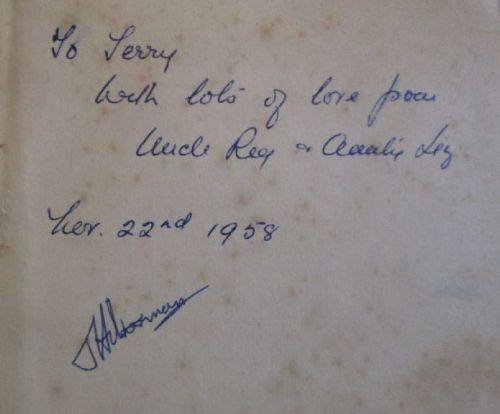 To Terry
with lots of love from
Uncle Reg & Auntie Liz
Nov. 22nd 1958